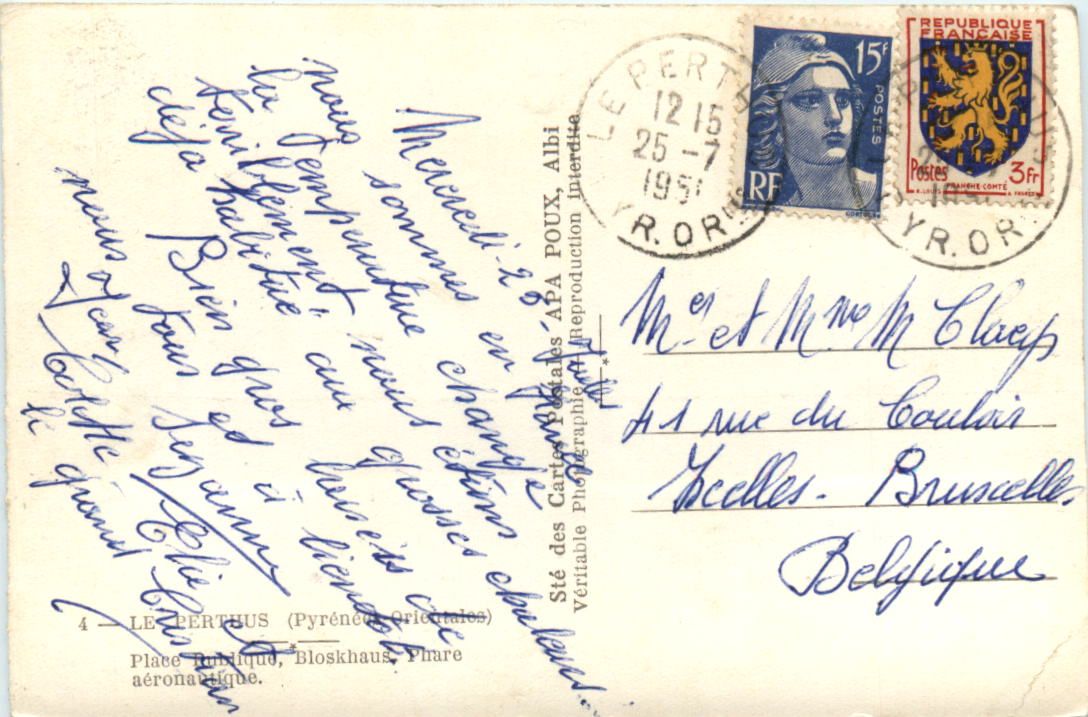 Mercredi - 25 - Juillet
sommes en
nous
la température change
terriblement nous étions
déjà habitué aux grosses chaleurs...
Bien gros baisers de
nous tous et à bientôt.
Jean
Colette
Elie et
le grand Christian
4 — LE PERTHUS (Pyrénées-Orientales)
Place Publique, Bloskhaus, Phare
aéronautique.
Sté des Cartes Postales APA POUX, Albi
Véritable Photographie - Reproduction interdite
LE PERTHUS
12 15
25 - 7
1951
PYR. OR LES
15F
POSTES
RF
GANDON
REPUBLIQUE
FRANÇAISE
Postes
3Fr
R. LOUIS
FRANCHE-COMTÉ
PYR. OR.
Mr et Mme M Claeys
41 rue du Couloir
Ixelles - Bruxelles
Belgique